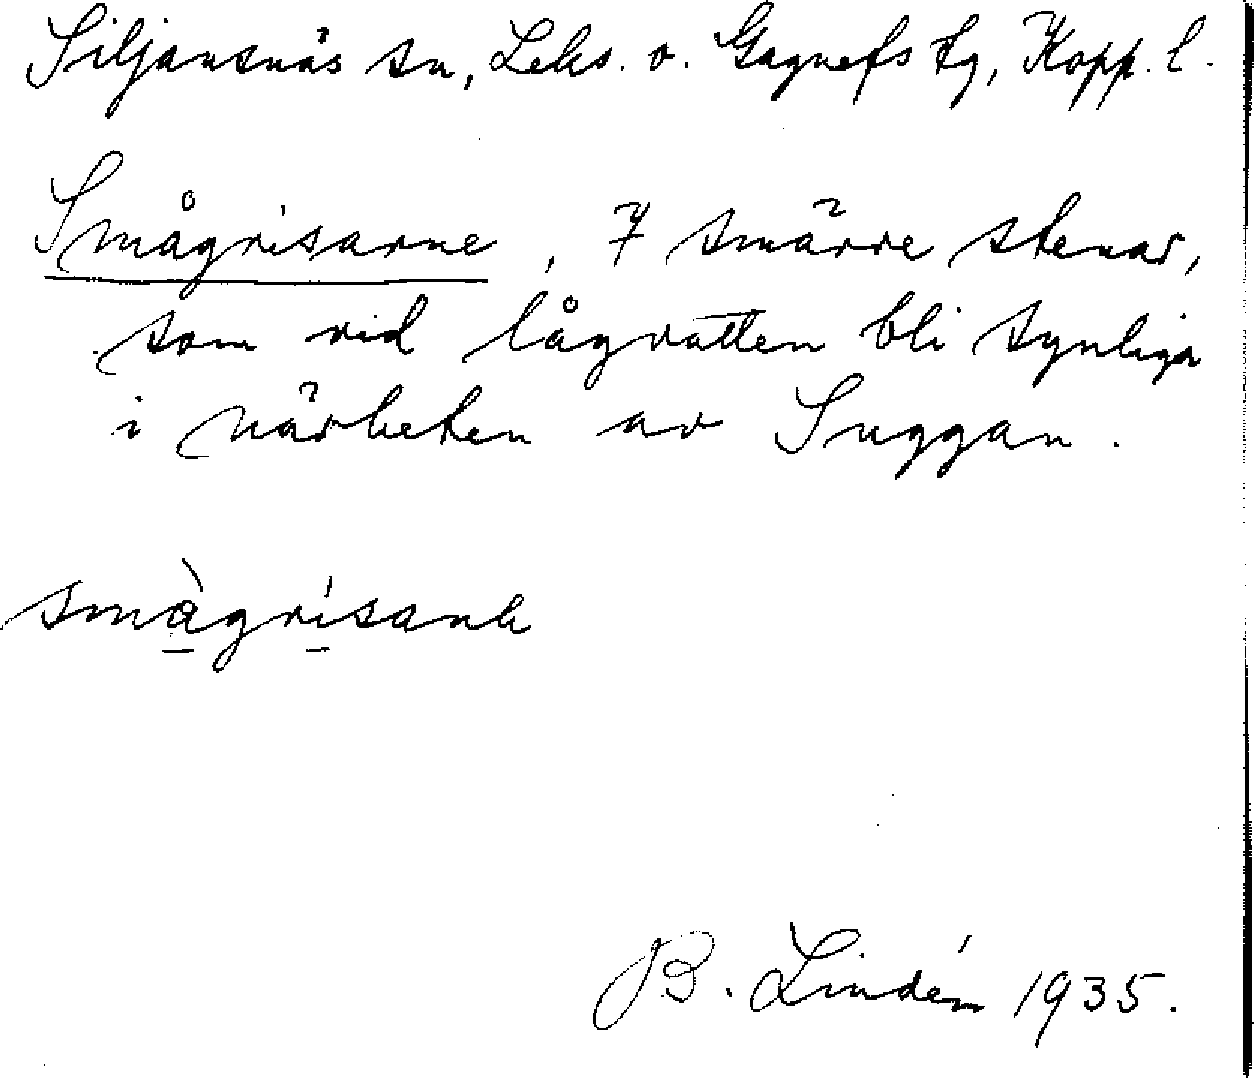 Siljansnäs sn, Leks. o. Gagnefs tg, Kopp. l.
Smågrisarne, 7 smärre stenar,
som vid lågvatten bli synliga
i närheten av Suggan.
B. Lindén 1935.